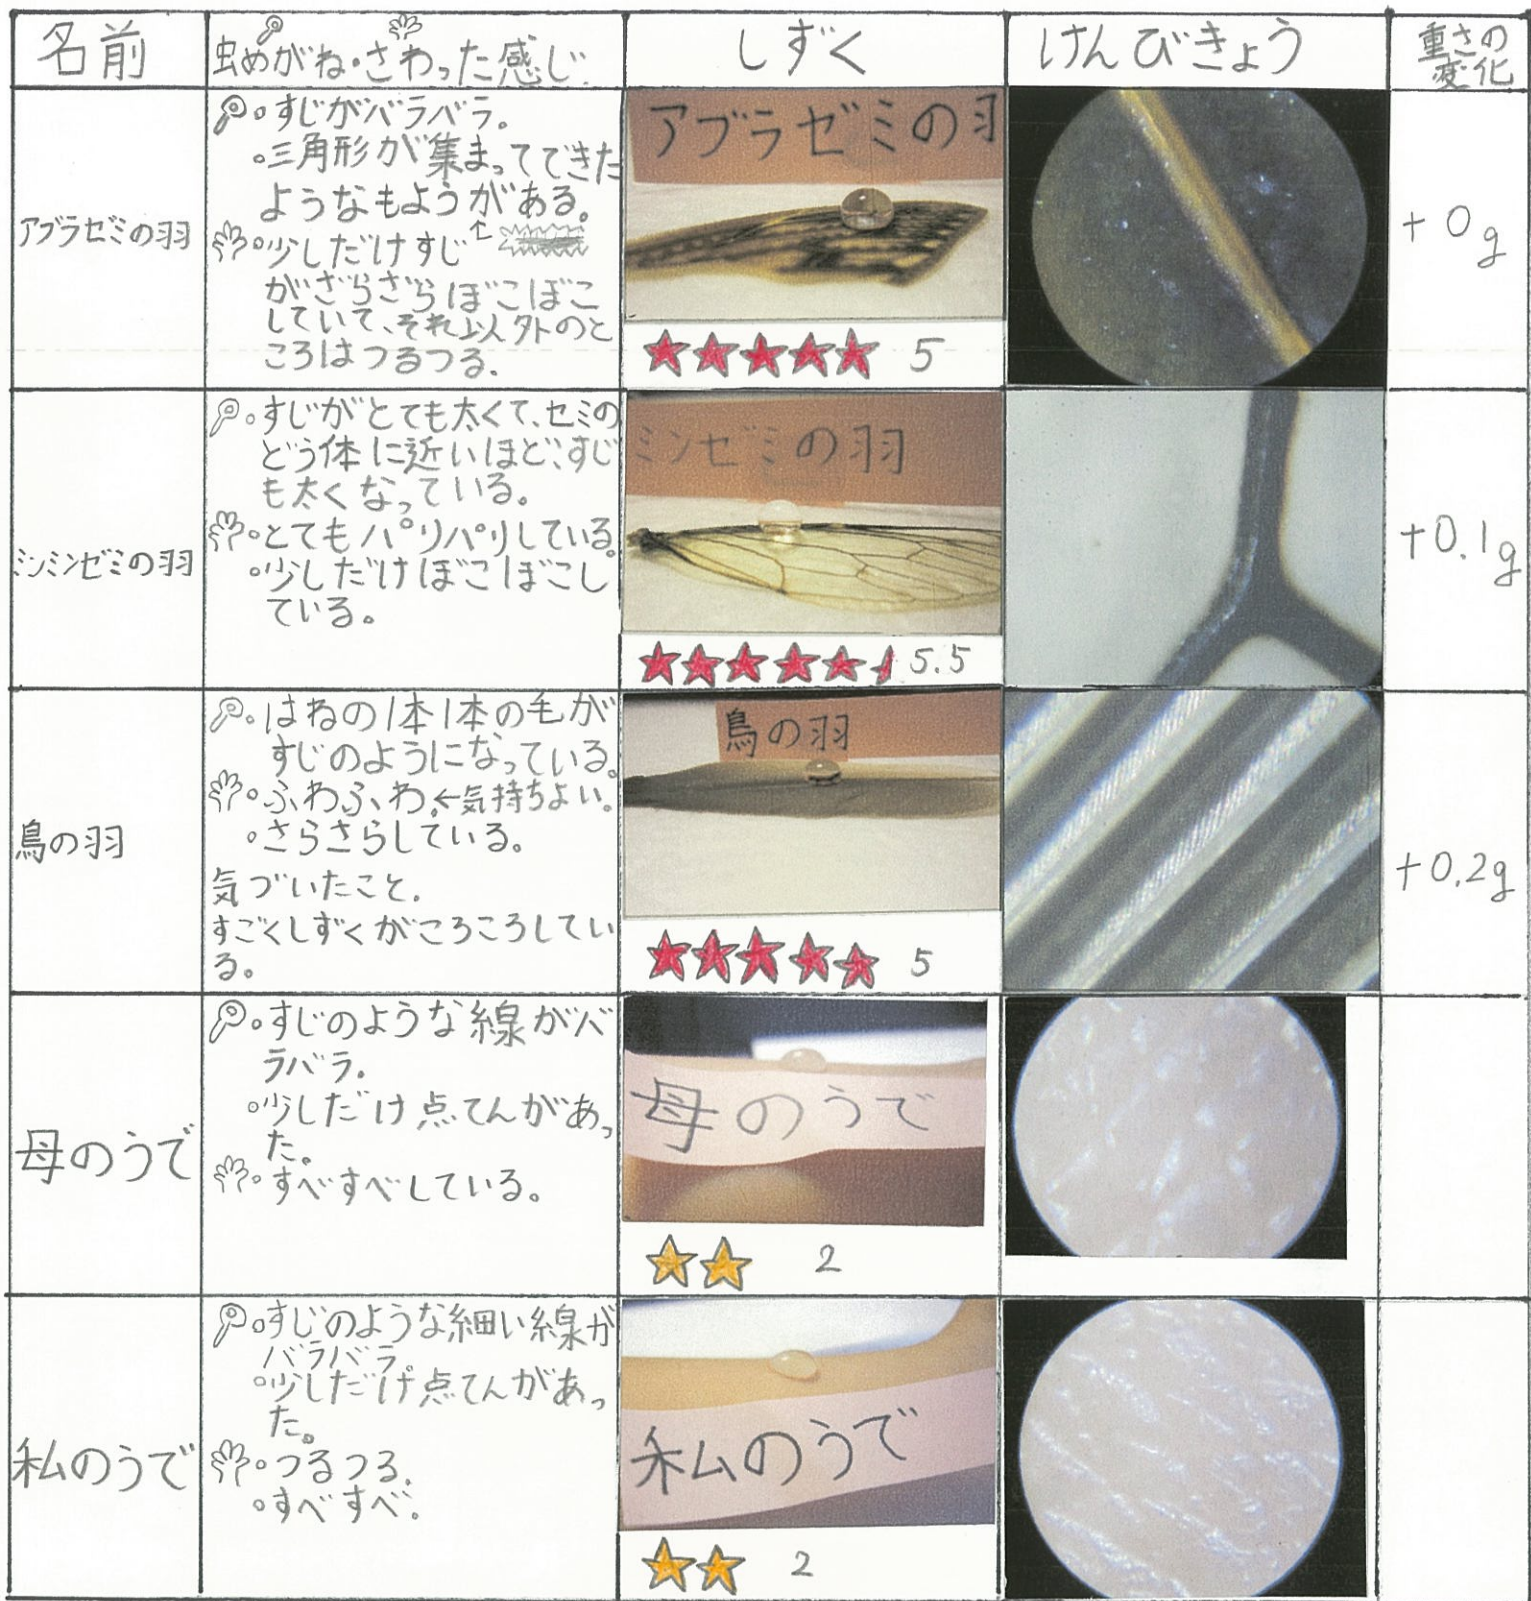 名前
虫めがね・さわった感じ
しずく
けんびきょう
重さの
変化
アブラゼミの羽
・すじがバラバラ。
・三角形が集まってできた
ようなもようがある。
・少しだけすじ
がざらざらぼこぼこ
していて、それ以外のと
ころはつるつる。
アブラゼミの羽
5
+0g
ミンミンゼミの羽
・すじがとても太くて、セミの
どう体に近いほど、すじ
も太くなっている。
・とてもパリパリしている。
・少しだけぼこぼこし
ている。
ミンゼミの羽
5.5
+0.1g
鳥の羽
・はねの1本1本の毛が
すじのようになっている。
・ふわふわ。←気持ちよい。
・さらさらしている。
気づいたこと.
すごくしずくがころころしてい
る。
鳥の羽
5
+0.2g
母のうで
・すじのような線がバ
ラバラ。
・少しだけ点てんがあっ
た。
・すべすべしている。
母のうで
2
私のうで
・すじのような細い線が
バラバラ。
・少しだけ点てんがあっ
た。
・つるつる.
・すべすべ.
私のうで
2